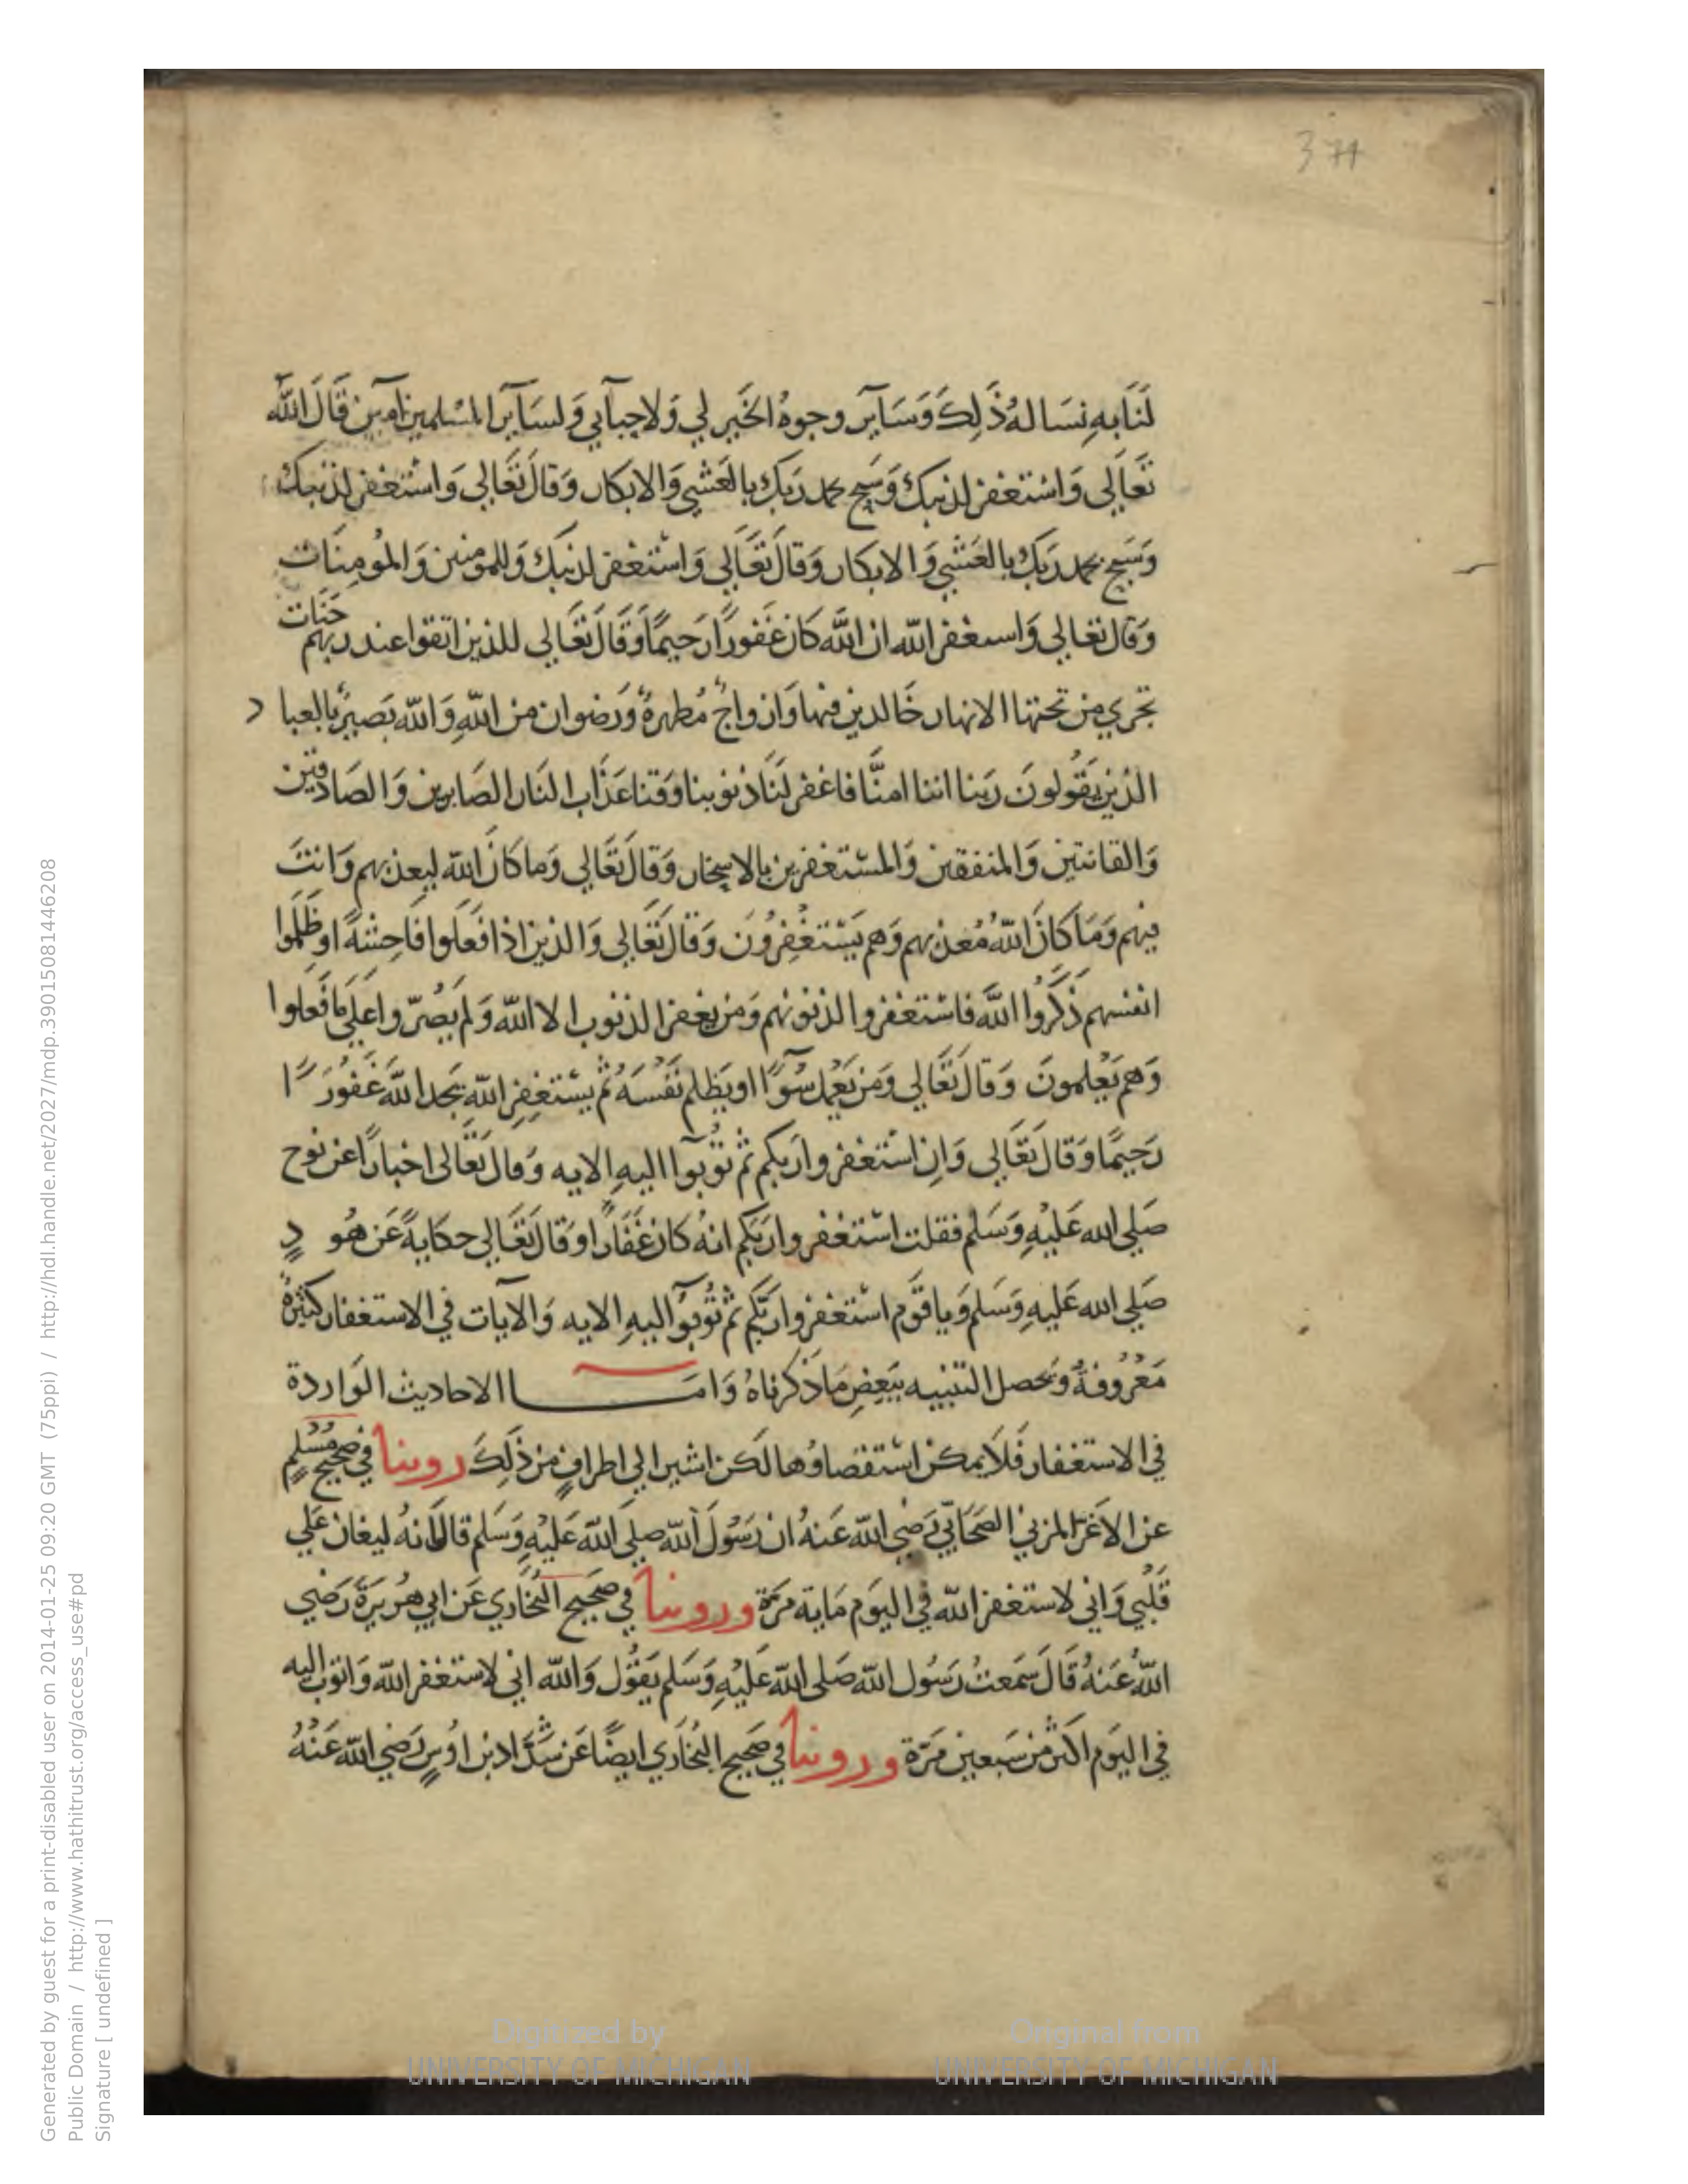 374
لَنَا به نِسَالهُ ذَلِكَ وَسَايَر وجوهُ الخَيرِ لي وَلاحِبآبي وَلسَايَر المسْلمين آمين قَالَ اللَّه
تَعَالَي وَاسْتغفر لذنبك وَسَبح بحمد رَبك بالعَشي وَالابكار وَقالَ تَعَالي وَاسْتغفر لذنبك
وَسَبح بحمد رَبك بالعَشي وَالابكار وَقالَ تَعَالَي وَاسْتغفر لذنبك وَللمومنين وَالمُومِنَات
وَقال تعَالي وَاسىغفر اللّه ان اللَّه كان غَفورًا رَحيمًا وَقَالَ تَعَالي للذين اتقوا عند ربهم جَنات
تجري من تحتها الانهار خَالدين فيها وَازواجٌ مُطهرةٌ وَرَضوان من اللَّهِ وَاللّه بَصيرٌ بالعبا د
الذين يَقُولونَ رَبنا اننا امنَّا فاغفر لَنَا ذنوبنا وَقنا عَذاب النَار الصَابرين وَالصَادقين
وَالقانتين وَالمنفقين وَالمسْتغفرين بالاسحَار وَقالَ تَعَالي وَما كانَ اللّه ليعذبهم وَانتَ
فيهم وَمَا كانَ اللَّهُ مُعذبهم وَهم يَسْتغفِرُونَ وَقالَ تَعَالي وَالذين اذا فَعَلوا فَاحِشةً اوظَلَموا
انفسهم ذَكَرُوا اللَّه فاسْتغفروا لذنوبهم وَمن يَغفر الذنوب الا اللّه وَلم يَصُرّوا عَلَي مَا فَعلوا
وَهم يَعْلمونَ وَقالَ تَعَالي وَمن يَعْمل سُوًا اويَظلم نَفْسَهُ ثم يسْتغفِرِ اللّه يَجد اللّهَ غَفُورَ ًا
رَحيمًا وَقَالَ تَعَالي وَانِ اسْتغفروا رَبكم ثم تُوبوا اليهِ الايه وَقالَ تَعَالى اخبارًا عن نوح
صَلي الله عَليْهِ وَسَلم فقلت اسْتغفروا رَبَكم انهُ كان غَفَارًا وَقَالَ تَعَالي حكايةً عَن هُو دٍ
صَلي الله عَليهِ وَسَلم وَيا قَوم اسْتغفروا رَبَّكم ثم تُوبُوا اليهِ الايه وَالآيات في الاستغفار كثيرةٌ
مَعْرُوفةٌ وَتحصل التنبيه ببَعض مَا ذَكرناهُ وَامَـــا الاحاديث الوَاردة
في الاستغفار فَلَا يمكن اسْتقصَاؤُها لَكن اشير الي اطرافٍ من ذَلِكَ روينا في صحيح مُسْلمٍ
عن الاغَرّ المزني الصَحَابيّ رَضي اللّه عَنهُ ان رَسُولَ اللّه صلي اللّه عَليْهِ وَسَلم قال انهُ ليغان عَلي
قَلْبي وَاني لاستغفر اللّه في اليَوم مَاية مَرّة وروينا في صَحيح البُخَاري عَن ابي هُرَيرَةَ رَضي
اللّهُ عَنهُ قَالَ سَمَعتُ رَسُول اللّه صَلى اللّه عَليْهِ وَسَلم يَقُول وَاللّه اني لاستغفر اللّه وَاتوب اليه
في اليَوم اكثر من سَبعين مَرّة وروينا في صَحيح البُخَاري ايضًا عَن شَدّاد بن اوُسٍ رَضي اللّه عَنْهُ
Digitized by
UNIVERSITY OF MICHIGAN
Original from
UNIVERSITY OF MICHIGAN
Generated by guest for a print-disabled user on 2014-01-25 09:20 GMT (75ppi) / http://hdl.handle.net/2027/mdp.39015081446208
Public Domain / http://www.hathitrust.org/access_use#pd
Signature [ undefined ]